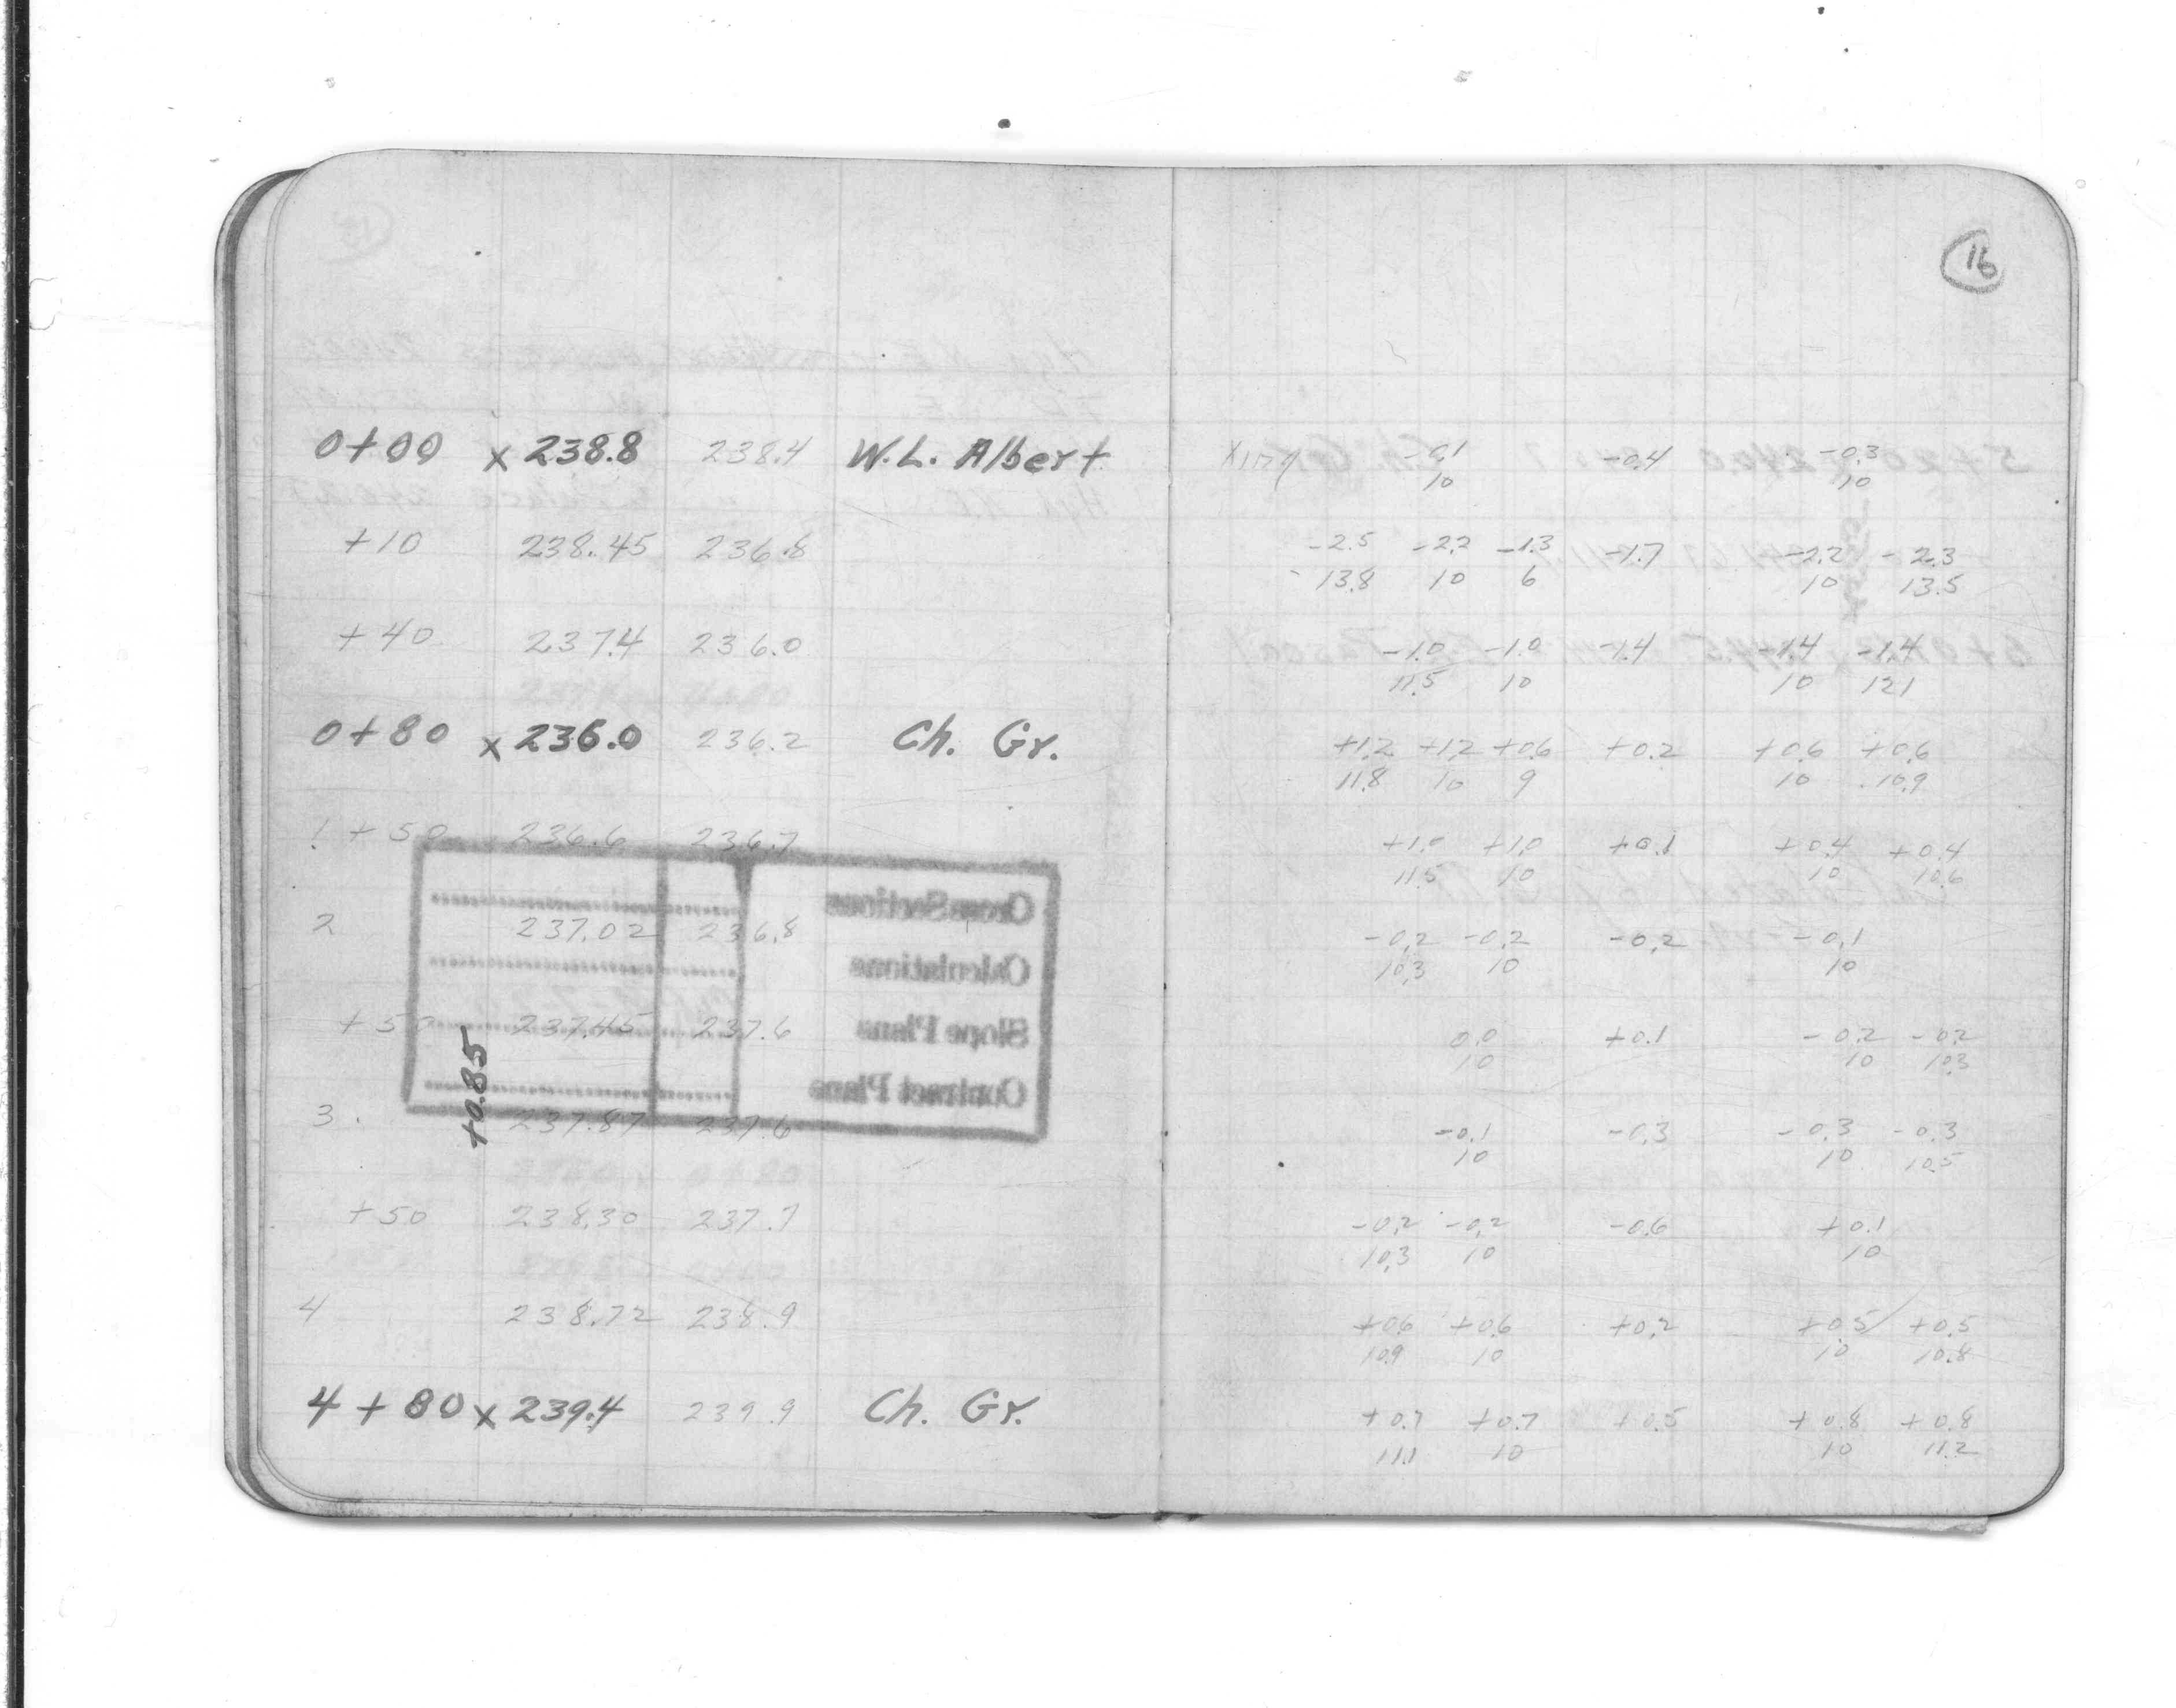 16
0+00 x 238.8 238.4 W.L. Albert Xing -0.1 -0.4 -0.3
10 10
+10 238.45 236.8 -2.5 -2.2 -1.3 -1.7 -2.2 -2.3
13.8 10 6 10 13.5
+40 237.4 236.0 -1.0 -1.0 -1.4 -1.4 -1.4
11.5 10 10 12.1
0+80 x 236.0 236.2 Ch. Gr. +1.2 +1.2 +0.6 +0.2 +0.6 +0.6
11.8 10 9 10 10.9
1+50 236.6 236.7 +1.0 +1.0 +0.1 +0.4 +0.4
11.5 10 10 10.6
Cross Sections
2 237.02 236.8 -0.2 -0.2 -0.2 -0.1
10.3 10 10
Calculations
+50 237.45 237.6 0.0 +0.1 -0.2 -0.2
10 10 10.3
Slope Plans
+0.85
Contract Plans
3 237.87 237.6 -0.1 -0.3 -0.3 -0.3
10 10 10.5
+50 238.30 237.7 -0.2 -0.2 -0.6 +0.1
10.3 10 10
4 238.72 238.9 +0.6 +0.6 +0.2 +0.5 +0.5
10.9 10 10 10.8
4+80 x 239.4 239.9 Ch. Gr. +0.7 +0.7 +0.5 +0.8 +0.8
11.1 10 10 11.2